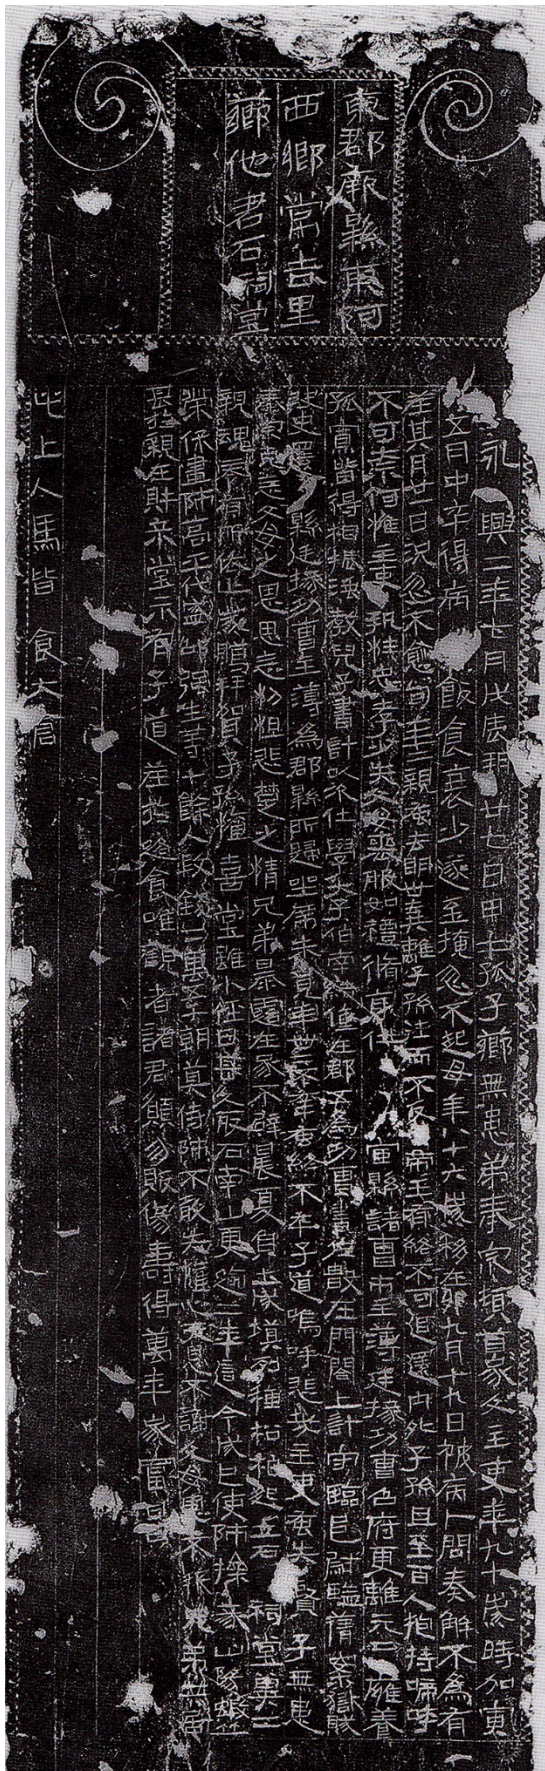 東郡厥縣東阿
西鄉常吉里
薌他君石祠堂
永興二年七月戊辰朔廿七日甲午孤子薌無患弟奉宗頓首家父主吏年九十歲時加寅
五月中卒得病飯食衰少遂至掩忽不起母年八十六歲移在卯九月十九日被病卜問奏解不為有
差其月廿一日況忽不愈旬年二親蚤去明世棄離子孫往而不反帝王有終不可追還內外子孫且至百人抱持啼呼
不可奈何惟主吏夙性忠孝少失父母喪服如禮脩身仕宦縣諸曹市主簿廷掾功曹召府更離元二雍養
孤寡皆得相振獨教兒子書計以次仕學大子伯南在郡五為功曹書佐在門閤上計守臨邑尉監案獄賊
決史還縣廷掾功曹主簿為郡縣所歸坐席未竟年卌二不幸蚤終不卒子道嗚呼悲哉主吏蚤失賢子無患
奉宗克念父母之恩思念忉怛悲楚之情兄弟暴露在冢不辟晨夏負土成墓列種松柏起立石祠堂冀二
親魂零有所依止歲臘拜賀子孫懽喜堂雖小經日甚久取石南山更逾二年迄今成已使師操義山陽瑕丘
榮保畫師高平代盛邵強生等十餘人段錢二萬五千朝莫侍師不敢失懽心天恩不謝父母恩不報兄弟共居
甚於親在財立小堂示有子道差於路食唯觀者諸君願勿敗傷壽得萬年家富昌
此上人馬皆食大倉